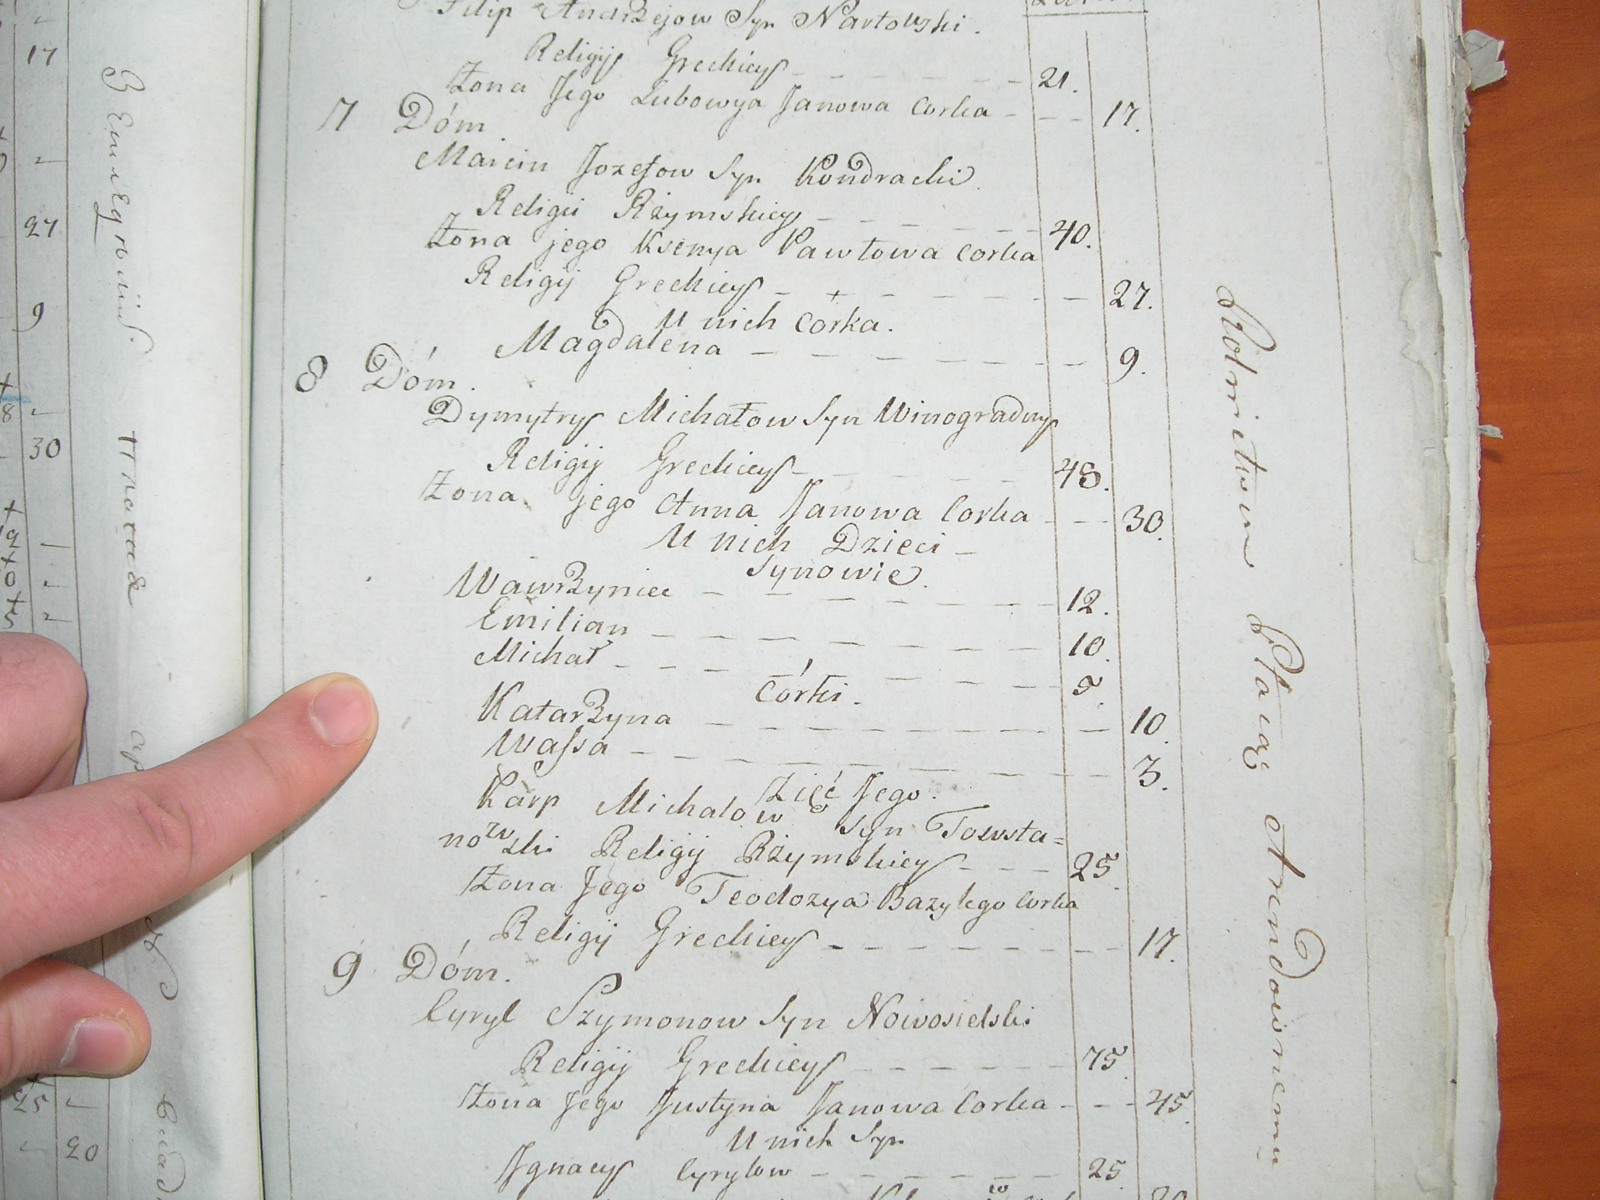 Filip Andrzejow Syn Nartowski.
Religij Greckiey 21.
Żona Jego Lubowya Janowa Corka 17.
7 Dóm
Marcin Jozefow Syn Kondracki
Religii Rżymskiey 40.
Żona jego Ksenya Pawłowa Corka
Religij Greckiey 27.
U nich Corka.
Magdalena 9.
8 Dóm.
Dymytry Michałow Syn Winogradny
Religij Greckiey 48.
Żona jego Anna Janowa Corka 30.
U nich Dzieci
Synowie.
Wawrzyniec 12.
Emilian 10.
Michał 5.
Córki.
Katarzyna 10.
Wassa 3.
Zięć Jego.
Karp Michałow Syn Towsta=
nowski Religij Rżymskiey 25.
Żona Jego Teodozya Bazylego Corka
Religij Greckiey 17.
9 Dóm.
Cyryl Szymonow Syn Nowosielski
Religij Greckiey 75.
Żona Jego Justyna Janowa Corka 45
U nich Syn
Jgnacy Cyrylow 25.
17
27
9
8
30
25
20
Płacą Arendownemu